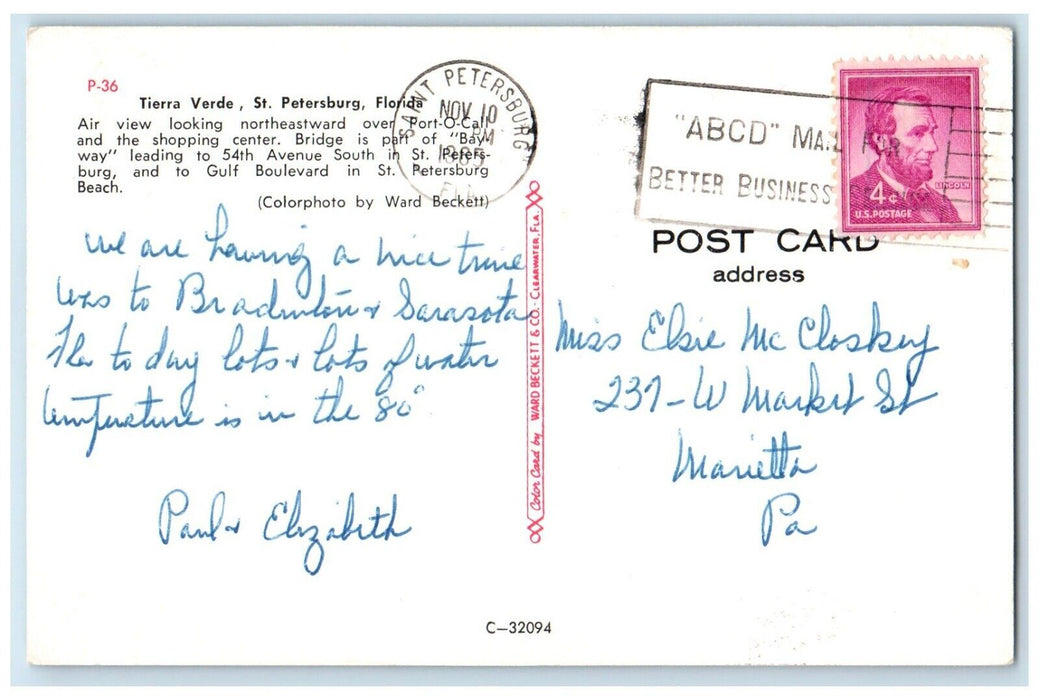 P-36
Tierra Verde, St. Petersburg, Florida
Air view looking northeastward over Port-O-Call
and the shopping center. Bridge is part of "Bay-
way" leading to 54th Avenue South in St. Peters-
burg, and to Gulf Boulevard in St. Petersburg
Beach.
(Colorphoto by Ward Beckett)
SAINT PETERSBURG
NOV 10
PM
1965
FLA
"ABCD" MAIL FOR
BETTER BUSINESS
4¢
LINCOLN
U.S. POSTAGE
POST CARD
address
We are having a nice time
was to Bradenton & Sarasota
Fla to day lots & lots of water
temperature is in the 80°
Paul & Elizabeth
Color Card by WARD BECKETT & CO. - CLEARWATER, FLA.
Miss Elsie McCloskey
237-W Market St
Marietta
Pa
C-32094